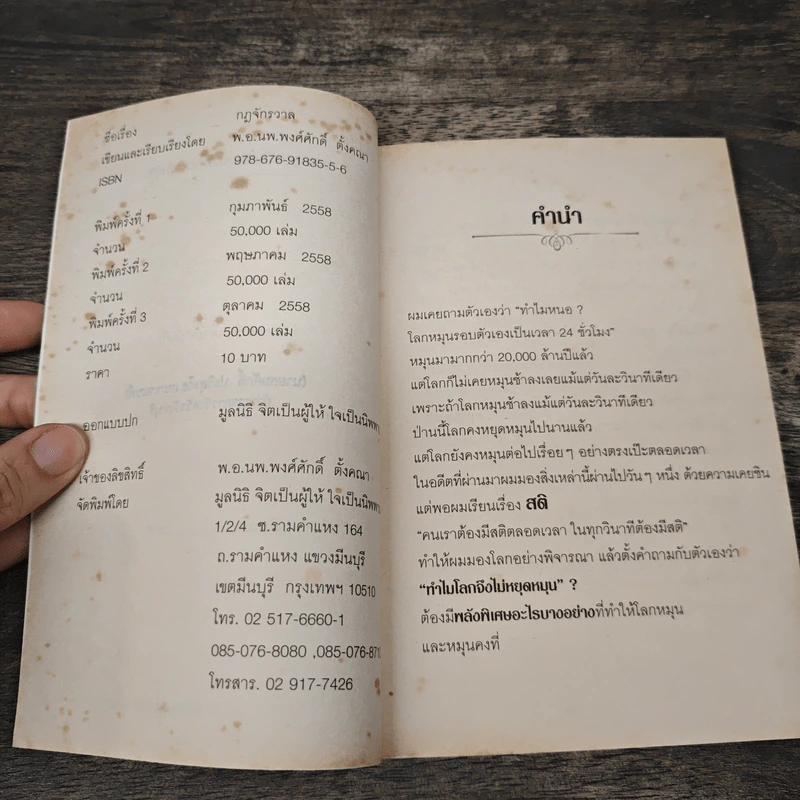 ชื่อเรื่อง กฎจักรวาล
เขียนและเรียบเรียงโดย พ.อ.นพ.พงศ์ศักดิ์ ตั้งคณา
ISBN 978-676-91835-5-6
พิมพ์ครั้งที่ 1 กุมภาพันธ์ 2558
จำนวน 50,000 เล่ม
พิมพ์ครั้งที่ 2 พฤษภาคม 2558
จำนวน 50,000 เล่ม
พิมพ์ครั้งที่ 3 ตุลาคม 2558
จำนวน 50,000 เล่ม
ราคา 10 บาท
ออกแบบปก มูลนิธิ จิตเป็นผู้ให้ ใจเป็นนิพพา
เจ้าของลิขสิทธิ์ พ.อ.นพ.พงศ์ศักดิ์ ตั้งคณา
จัดพิมพ์โดย มูลนิธิ จิตเป็นผู้ให้ ใจเป็นนิพพา
1/2/4 ซ.รามคำแหง 164
ถ.รามคำแหง แขวงมีนบุรี
เขตมีนบุรี กรุงเทพฯ 10510
โทร. 02 517-6660-1
085-076-8080 ,085-076-871
โทรสาร. 02 917-7426
คำนำ
ผมเคยถามตัวเองว่า "ทำไมหนอ ?
โลกหมุนรอบตัวเองเป็นเวลา 24 ชั่วโมง"
หมุนมามากกว่า 20,000 ล้านปีแล้ว
แต่โลกก็ไม่เคยหมุนช้าลงเลยแม้แต่วันละวินาทีเดียว
เพราะถ้าโลกหมุนช้าลงแม้แต่วันละวินาทีเดียว
ป่านนี้โลกคงหยุดหมุนไปนานแล้ว
แต่โลกยังคงหมุนต่อไปเรื่อยๆ อย่างตรงเป๊ะตลอดเวลา
ในอดีตที่ผ่านมาผมมองสิ่งเหล่านี้ผ่านไปวันๆ หนึ่ง ด้วยความเคยชิน
แต่พอผมเรียนเรื่อง สติ
"คนเราต้องมีสติตลอดเวลา ในทุกวินาทีต้องมีสติ"
ทำให้ผมมองโลกอย่างพิจารณา แล้วตั้งคำถามกับตัวเองว่า
"ทำไมโลกจึงไม่หยุดหมุน" ?
ต้องมีพลังพิเศษอะไรบางอย่างที่ทำให้โลกหมุน
และหมุนคงที่